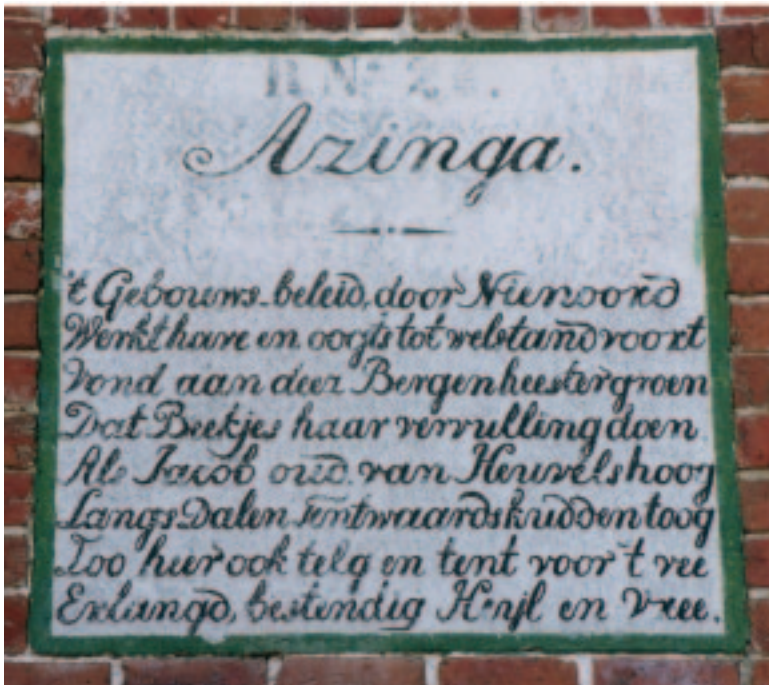 R. No. 2.
Azinga.
't Gebouws-beleid, door Nienoord
Werkt have en oogts tot welstand voort
Vond aan deez Bergen heestergroen
Dat Beekjes haar vervulling doen.
Als Jacob oud van Heuvelshoog
Langs Dalen Tentwaards kudden toog
Zoo hier ook telg en tent voor 't vee
Erlangd, bestendig Heyl en Vree.